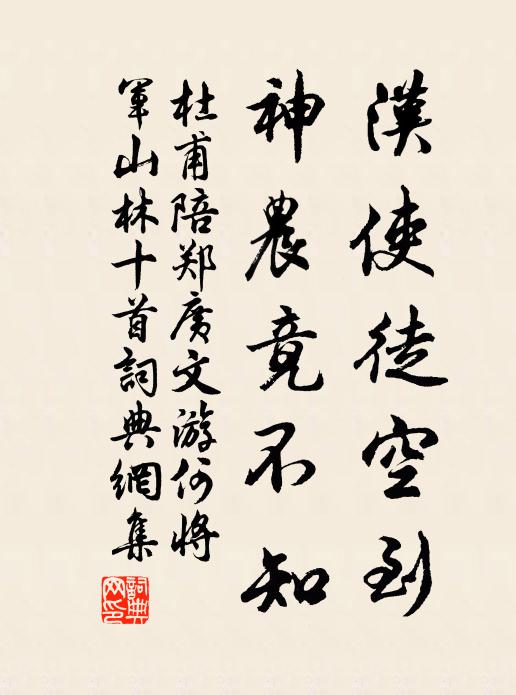 漢使徒空到
神農竟不知
杜甫陪郑廣文游何將
軍山林十首詞典網集
詞典
网印